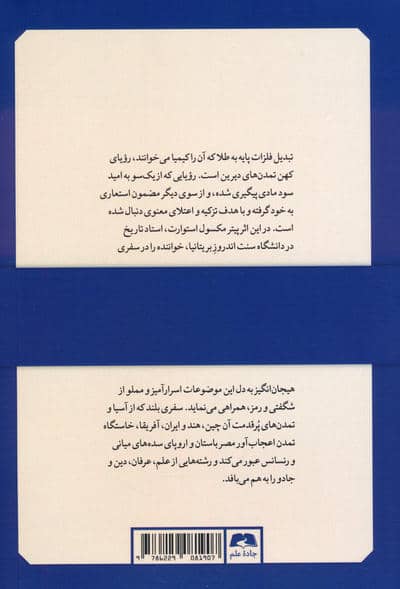 تبدیل فلزات پایه به طلا که آن را کیمیا می‌خوانند، رؤیای
کهن تمدن‌های دیرین است. رؤیایی که از یک‌سو به امید
سود مادی پیگیری شده، و از سوی دیگر مضمون استعاری
به خود گرفته و با هدف تزکیه و اعتلای معنوی دنبال شده
است. در این اثر پیتر مکسول استوارت، استاد تاریخ
در دانشگاه سنت اندروز بریتانیا، خواننده را در سفری
هیجان‌انگیز به دل این موضوعات اسرارآمیز و مملو از
شگفتی و رمز، همراهی می‌نماید. سفری بلند که از آسیا و
تمدن‌های پُرقدمت آن چین، هند و ایران، آفریقا، خاستگاه
تمدن اعجاب‌آور مصر باستان و اروپای سده‌های میانی
و رنسانس عبور می‌کند و رشته‌هایی از علم، عرفان، دین و
جادو را به هم می‌بافد.
جادهٔ علم
9 786229 081907